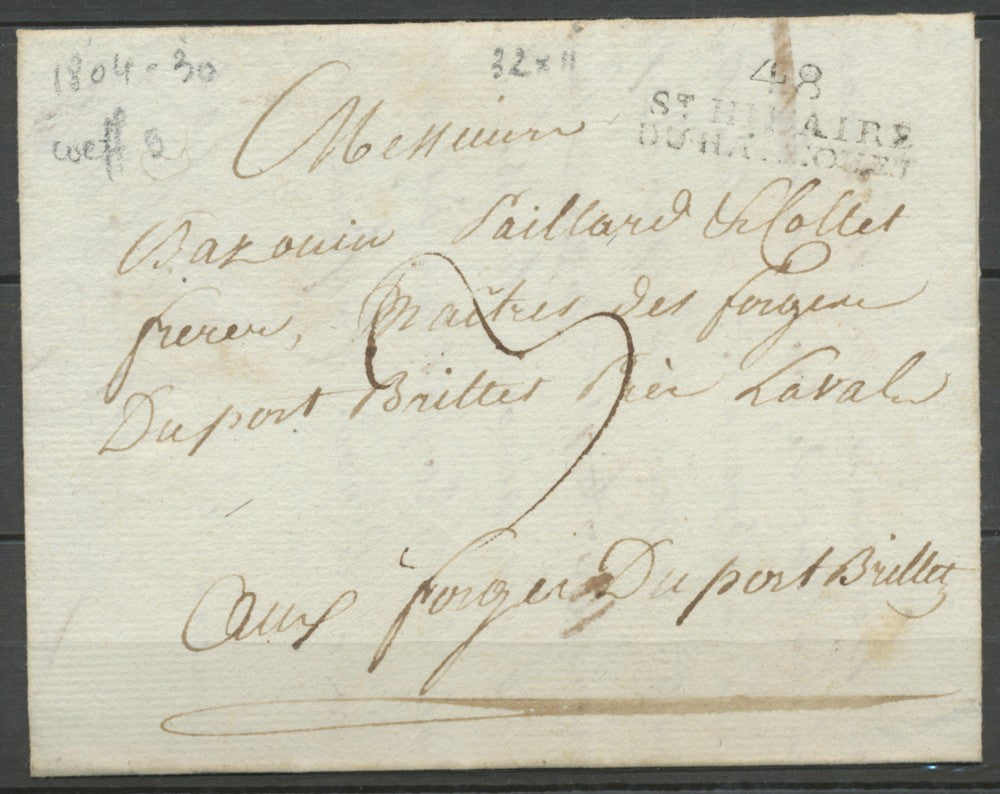 1804-30
32x11
coeff 9
48
ST HILAIRE
DU HARCOUET
Messieurs
Bazouin Paillard & Collet
freres, Maîtres des forges
Du port Brillet Près Laval
3
aux forges Du port Brillet